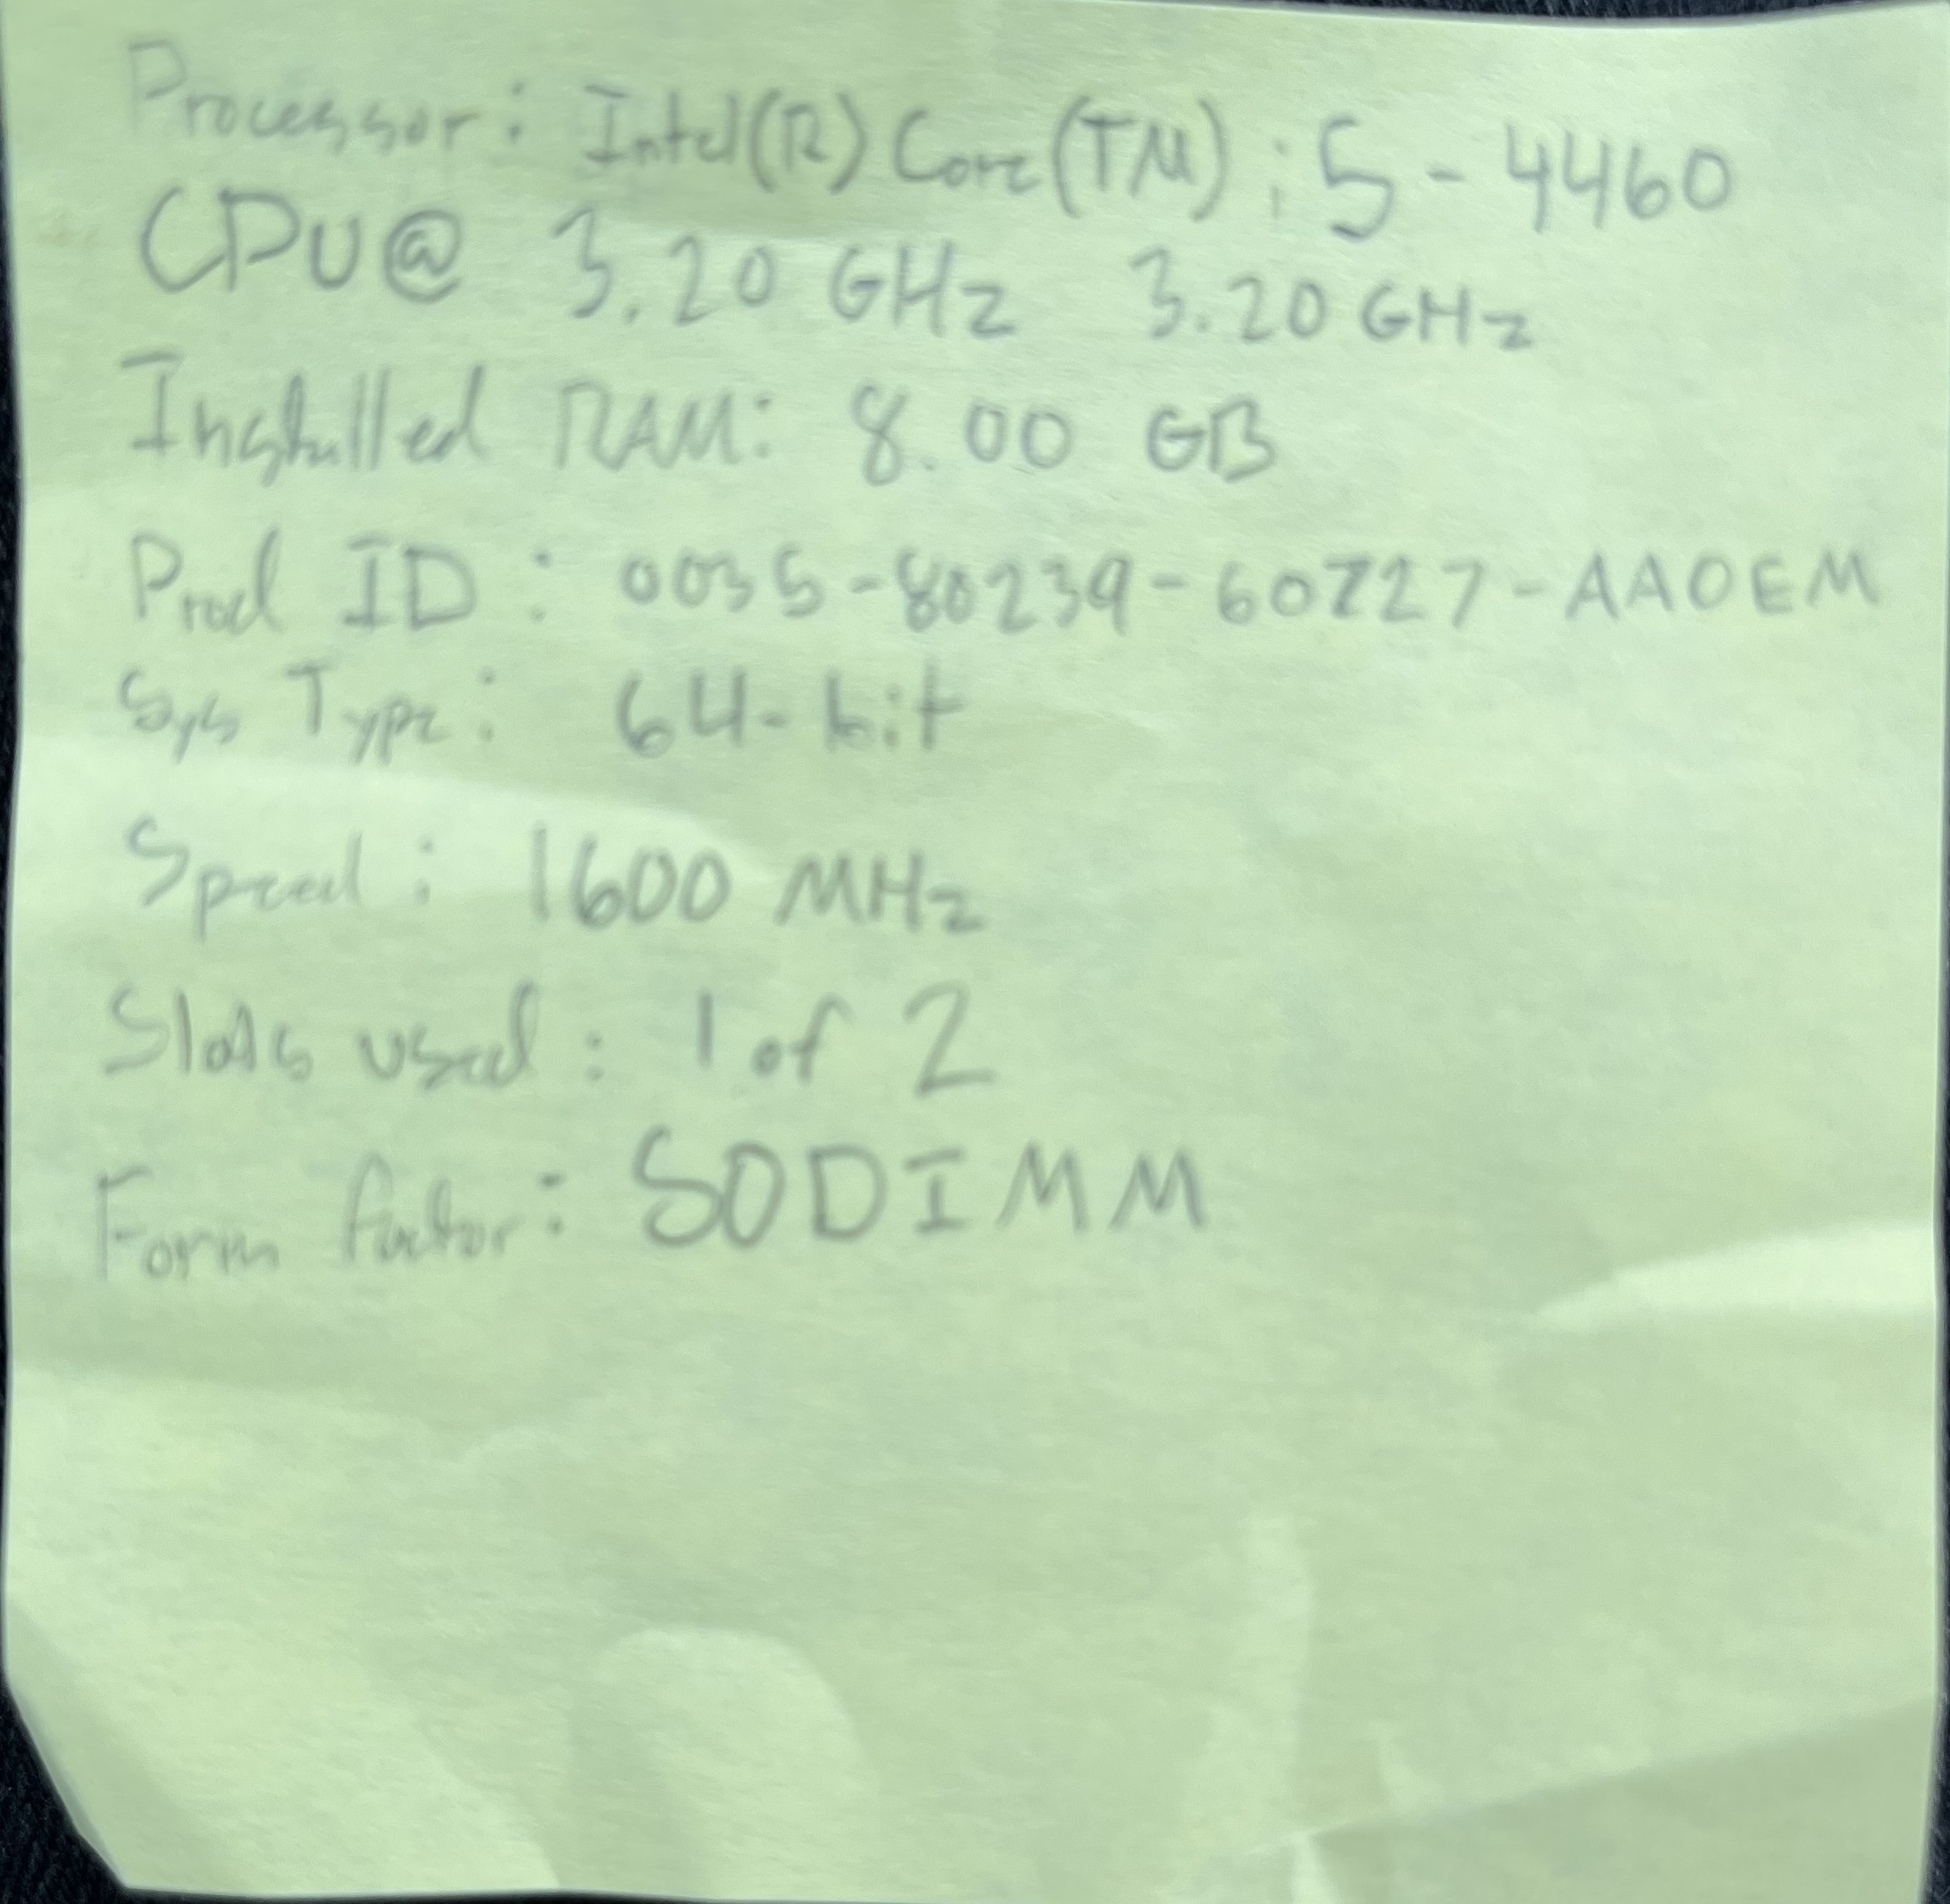 Processor: Intel(R) Core(TM) i5-4460
CPU@ 3.20 GHz 3.20 GHz
Installed RAM: 8.00 GB
Prod ID: 0035-80239-60227-AAOEM
Sys Type: 64-bit
Speed: 1600 MHz
Slots used: 1 of 2
Form factor: SODIMM